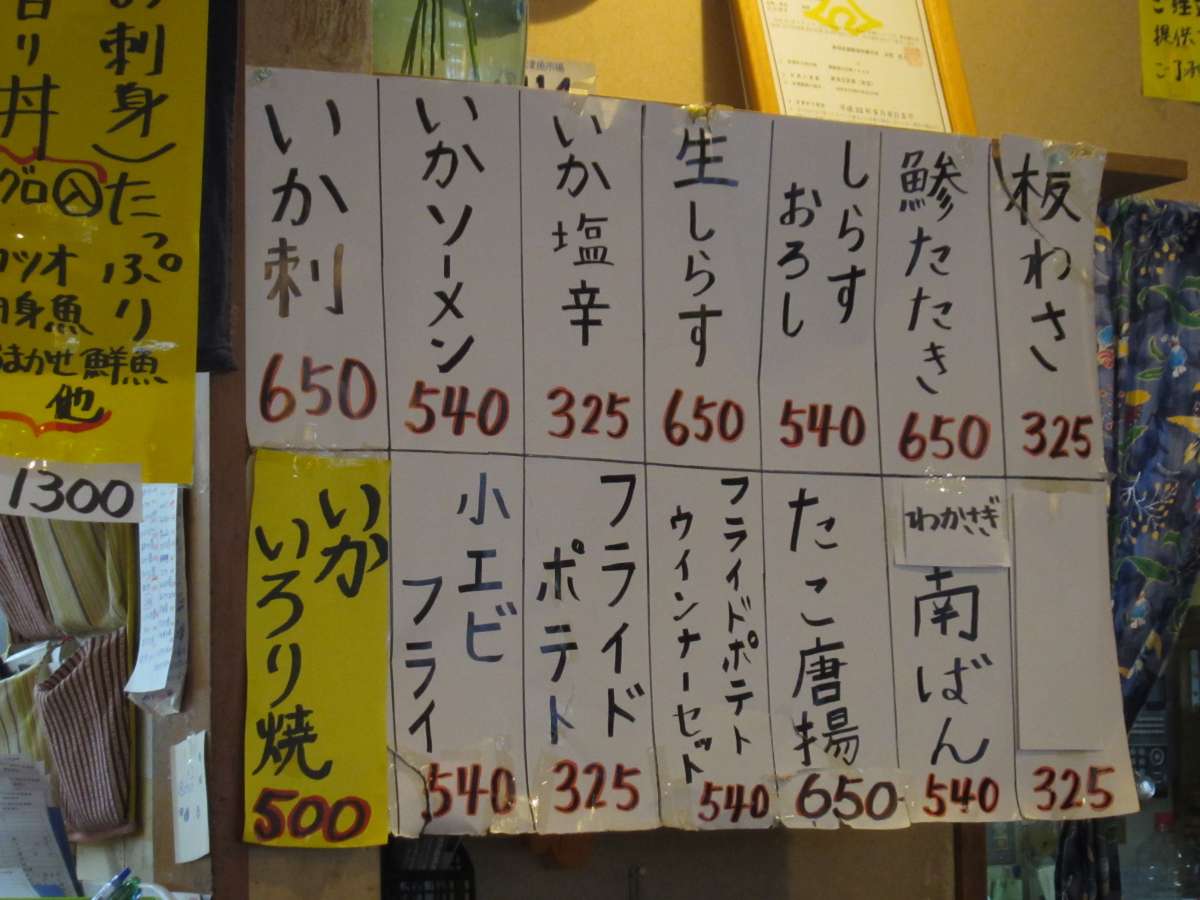 の刺身)たっぷり
丼
カツオ
身魚
おまかせ鮮魚
他
1300
板わさ
325
鯵たたき
650
しらす
おろし
540
生しらす
650
いか塩辛
325
いかソーメン
540
いか刺
650
325
わかさぎ
南ばん
540
たこ唐揚
650
フライドポテト
ウインナーセット
540
フライド
ポテト
325
小エビ
フライ
540
いか
いろり焼
500
提供